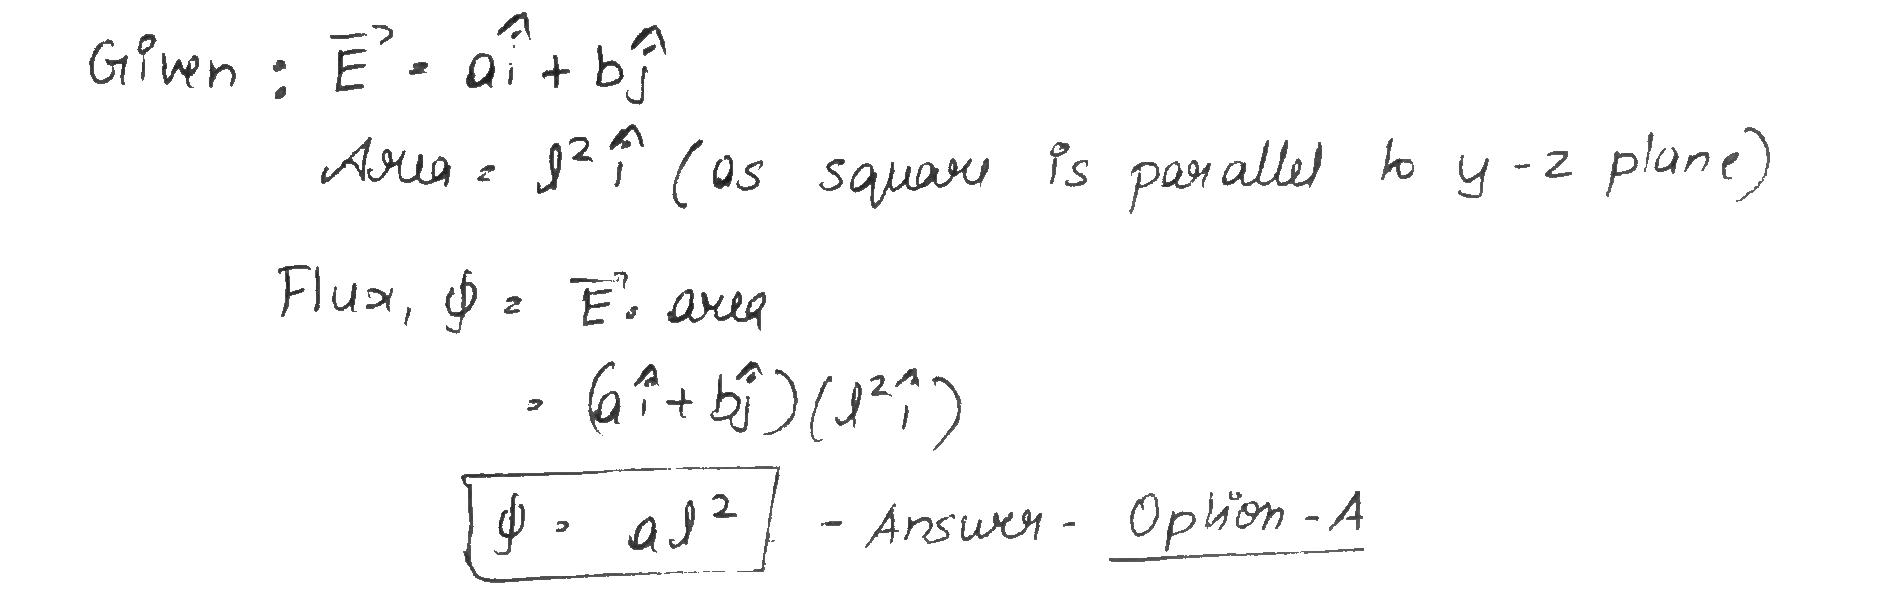 Given : E⃗ = aî + bĵ
Area = l² î (as square is parallel to y-z plane)
Flux, φ = E⃗. area
= (aî + bĵ)(l² î)
φ = al² - Answer - Option-A